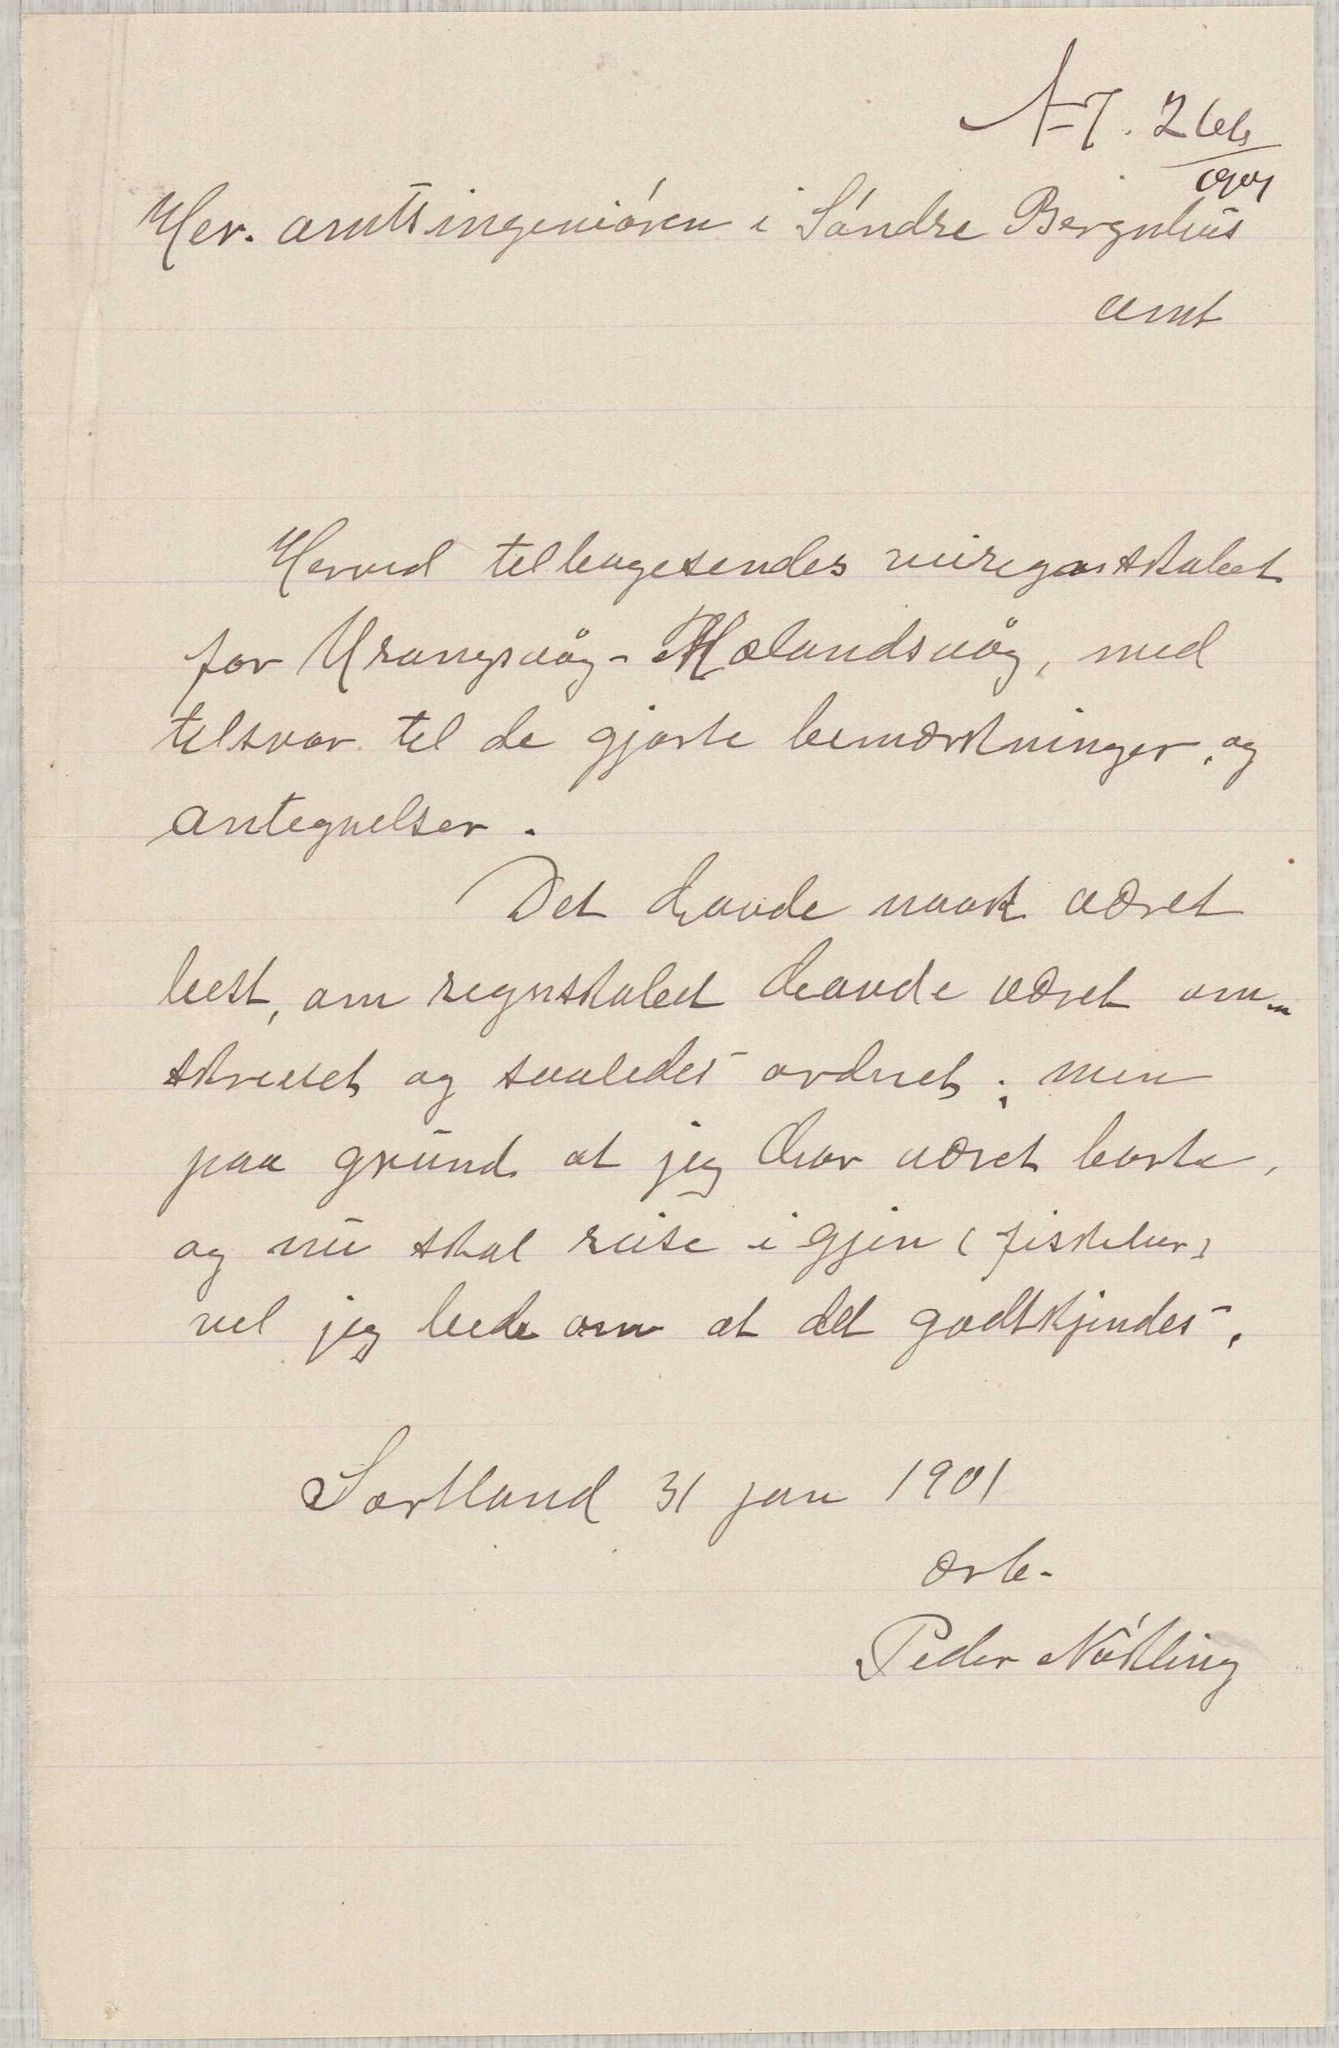 Her. amtsingeniören i Söndre Bergnhus
amt
Herved telbagesendes veiregnskabet
for Urangsvåg - Mælandsvåg, med
telsvar tel de gjorte bemærkninger, og
antegnelser.
Det havde nook været
best, om regnskabet havde været om-
skrevet og saaledes ordnet; men
paa grund at jeg har været borte,
og nu skal reise igjen (fiskeber)
vel jeg bede om at det godtkjendes.
Sortland 31 jan 1901
ærb.
Peder Nökling